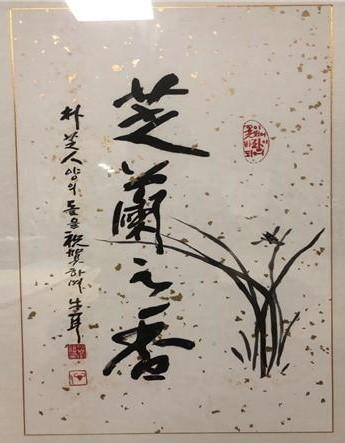 芝蘭之香
朴芝人양의 돌을 祝賀하며